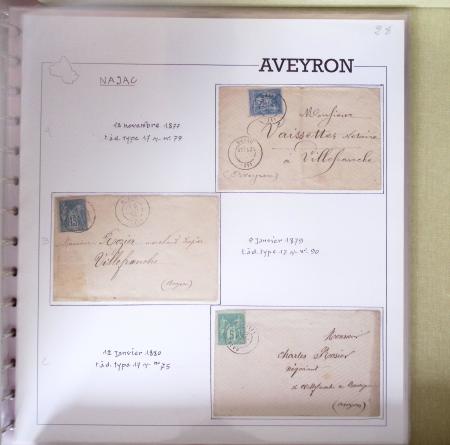 28
AVEYRON
NAJAC
12 novembre 1877
t.à d. type 17 s/ n° 79
Monsieur
Vaissettes Notaire
à Villefranche
(Aveyron)
15
Monsieur Rozier
Villefranche
(Aveyron)
9 Janvier 1879
t.à d. type 17 s/ n° 90
12 Janvier 1880
t.à d. type 17 s/ n° 75
5
Monsieur
Charles Rosier
négociant
à Villefranche de Rouergue
(Aveyron)